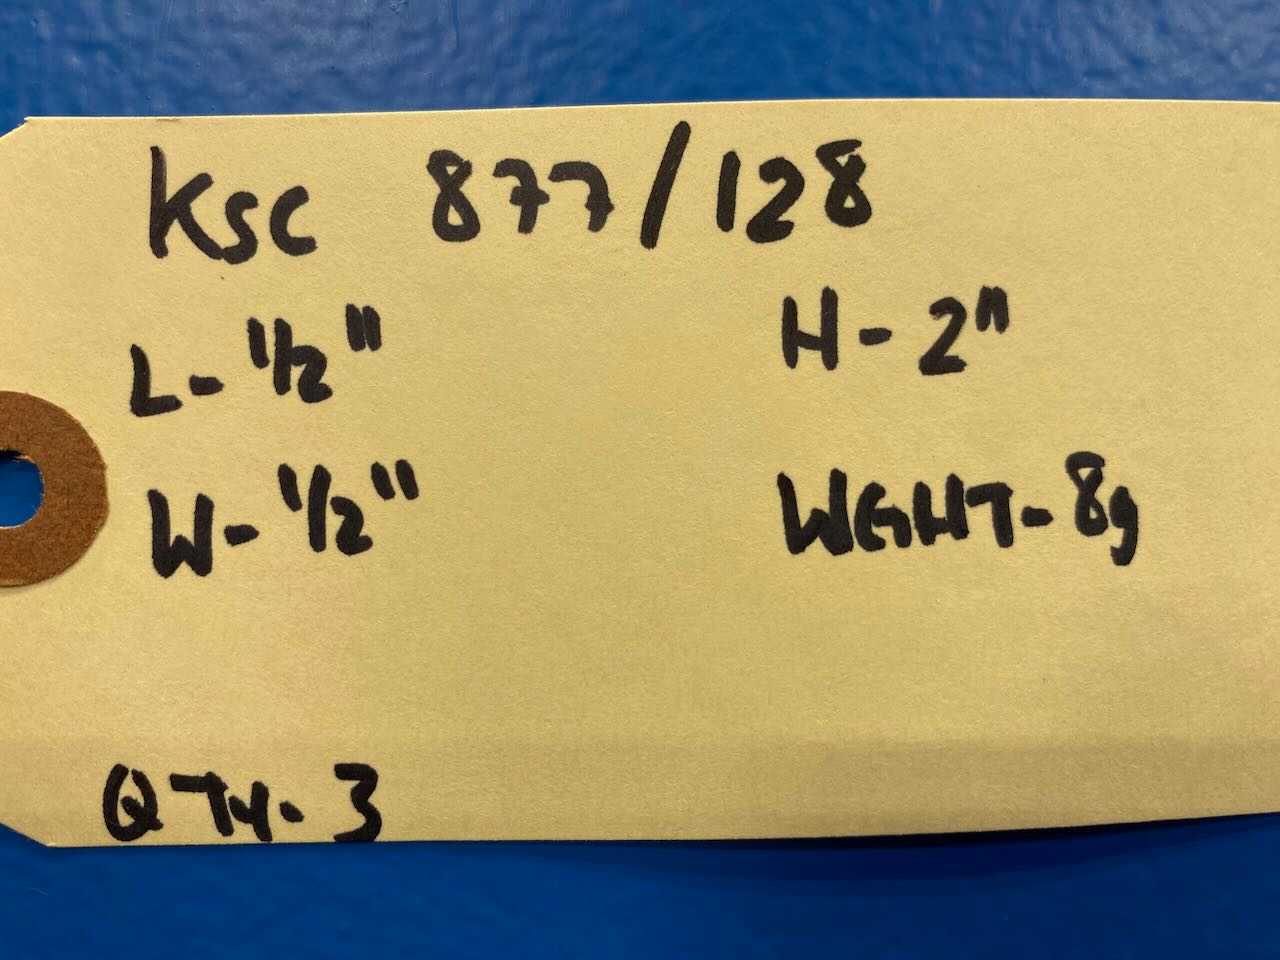 KSC 877/128
L- 1/2" H- 2"
W- 1/2" WGHT- 8g
QTY- 3